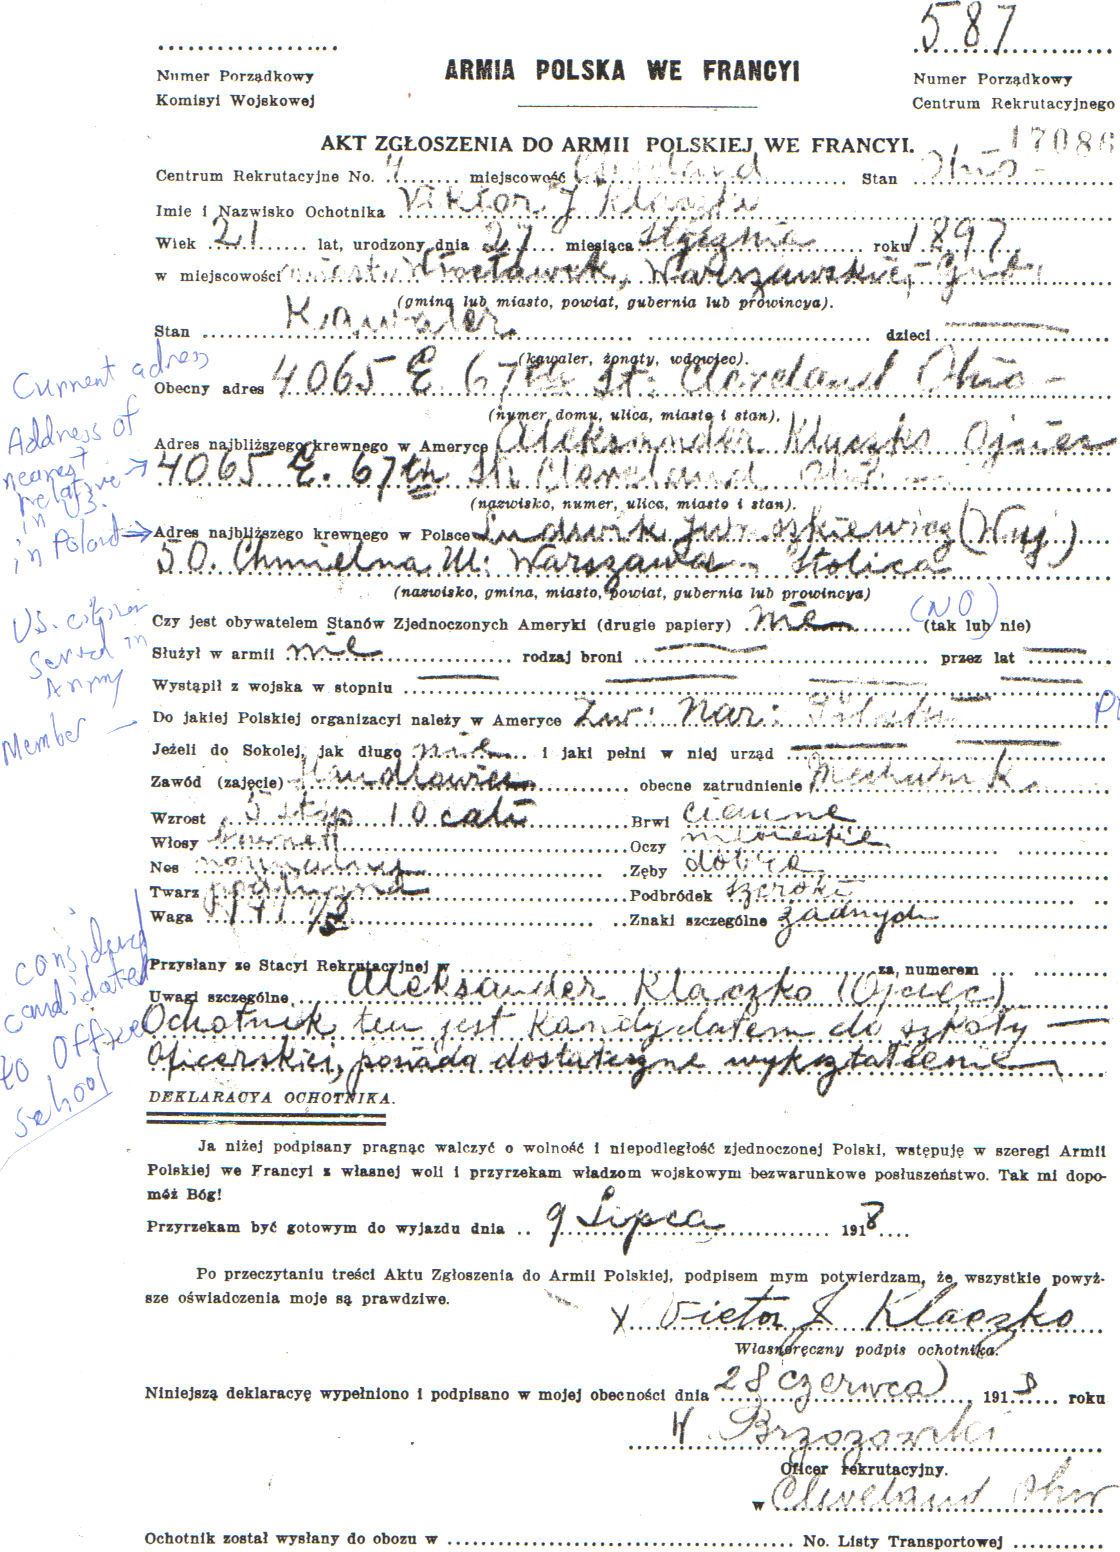 587
Numer Porządkowy
Komisyi Wojskowej
ARMIA POLSKA WE FRANCYI
Numer Porządkowy
Centrum Rekrutacyjnego
AKT ZGŁOSZENIA DO ARMII POLSKIEJ WE FRANCYI.
17086
Centrum Rekrutacyjne No. 4 miejscowość Cleveland Stan Ohio -
Imie i Nazwisko Ochotnika Viktor J Klaczko
Wiek 21 lat, urodzony dnia 27 miesiąca Stycznia roku 1897
w miejscowości miasto Włocławek, Warszawskiej Gub.
(gmina lub miasto, powiat, gubernia lub prowincya).
Stan Kawaler dzieci —
(kawaler, żonaty, wdowiec).
Current adress
Obecny adres 4065 E. 67th St: Cleveland Ohio -
(numer domu, ulica, miasto i stan).
Address of nearest relative in U.S.
Adres najbliższego krewnego w Ameryce Aleksander Klaczko Ojciec
4065 E. 67th St: Cleveland
(nazwisko, numer, ulica, miasto i stan).
in Poland
Adres najbliższego krewnego w Polsce Ludwik (Wuj)
50. Chmielna Ul: Warszawa - Stolica
(nazwisko, gmina, miasto, powiat, gubernia lub prowincya)
US. citizen
(NO)
Czy jest obywatelem Stanów Zjednoczonych Ameryki (drugie papiery) nie (tak lub nie)
Served in Army
Służył w armii nie rodzaj broni — przez lat —
Wystąpił z wojska w stopniu —
Member -
Do jakiej Polskiej organizacyi należy w Ameryce Zw: Nar:
Jeżeli do Sokolej, jak długo nie i jaki pełni w niej urząd —
Zawód (zajęcie) Handlowiec obecne zatrudnienie Mechanik
Wzrost 5 stóp 10 cali Brwi ciemne
Włosy brunet Oczy niebieskie
Nos normalny Zęby dobre
Twarz podłużna Podbródek szeroki
Waga Znaki szczególne żadnych
Przysłany ze Stacyi Rekrutacyjnej w za numerem
Uwagi szczególne Aleksander Klaczko (Ojciec)
considered candidated to Officer school
Ochotnik ten jest kandydatem do szkoły —
Oficerskiej, posiada dostateczne wykształcenie
DEKLARACYA OCHOTNIKA.
Ja niżej podpisany pragnąc walczyć o wolność i niepodległość zjednoczonej Polski, wstępuję w szeregi Armii
Polskiej we Francyi z własnej woli i przyrzekam władzom wojskowym bezwarunkowe posłuszeństwo. Tak mi dopo-
móż Bóg!
Przyrzekam być gotowym do wyjazdu dnia 9 Lipca 1918
Po przeczytaniu treści Aktu Zgłoszenia do Armii Polskiej, podpisem mym potwierdzam, że wszystkie powyż-
sze oświadczenia moje są prawdziwe.
X Victor J Klaczko
Własnoręczny podpis ochotnika.
Niniejszą deklaracyę wypełniono i podpisano w mojej obecności dnia 28 Czerwca 1918 roku
W. Brzozowski
Oficer rekrutacyjny.
w Cleveland Ohio
Ochotnik został wysłany do obozu w No. Listy Transportowej